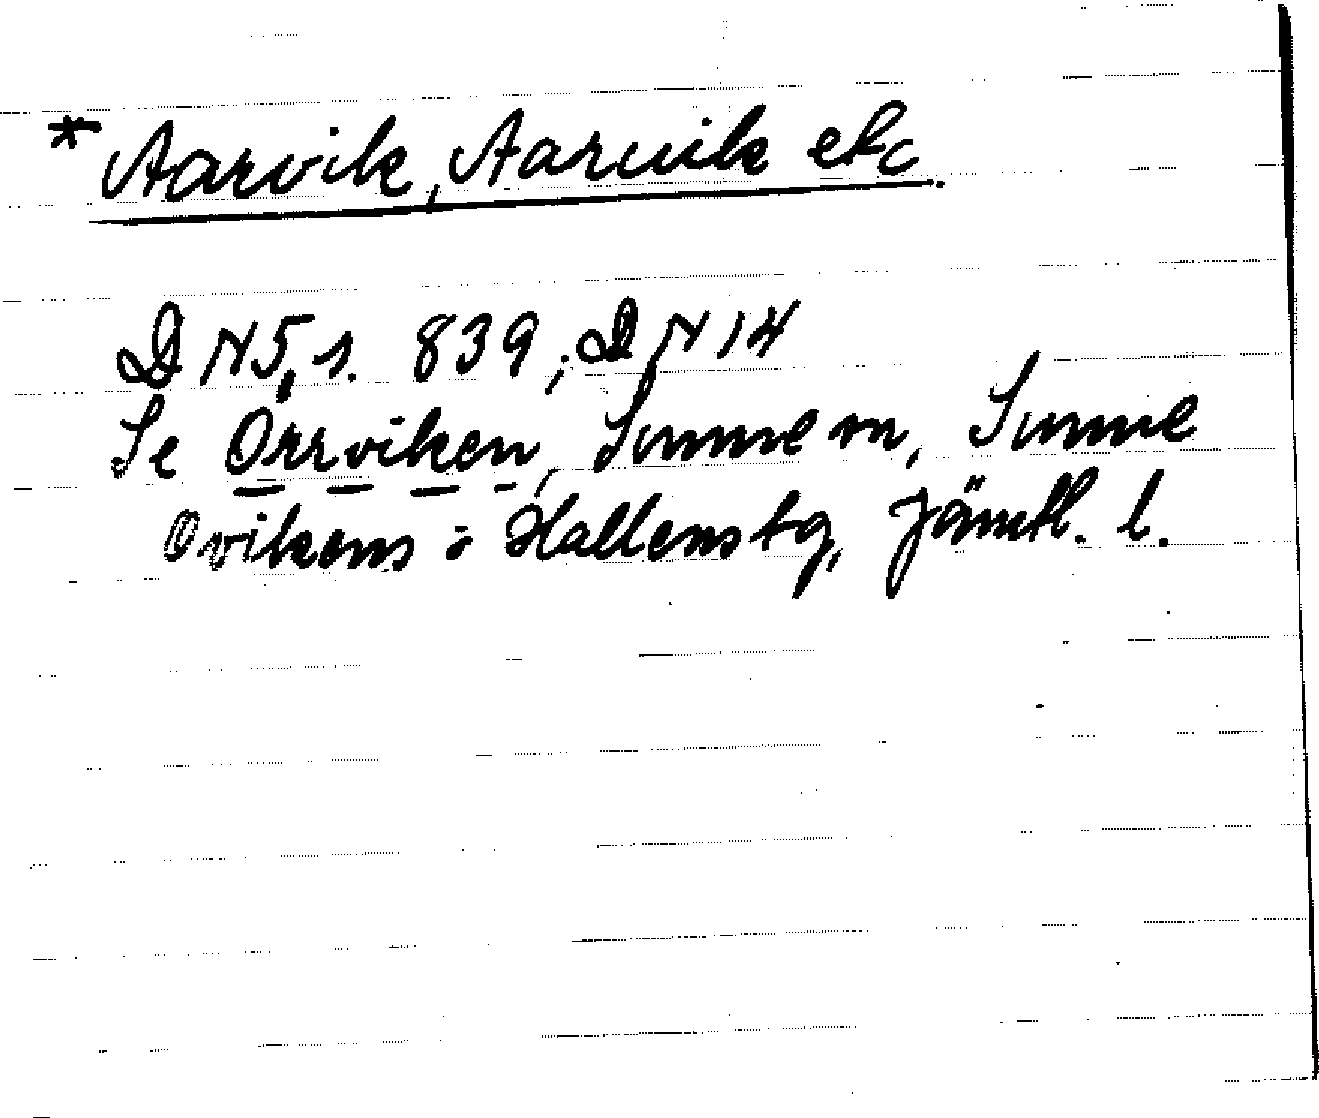 * Aarvik, Aarwik etc.
DN5, s. 839; DN14
Se Orrviken, Sunne sn, Sunne
Ovikens o Hallens tg, Jämtl. l.